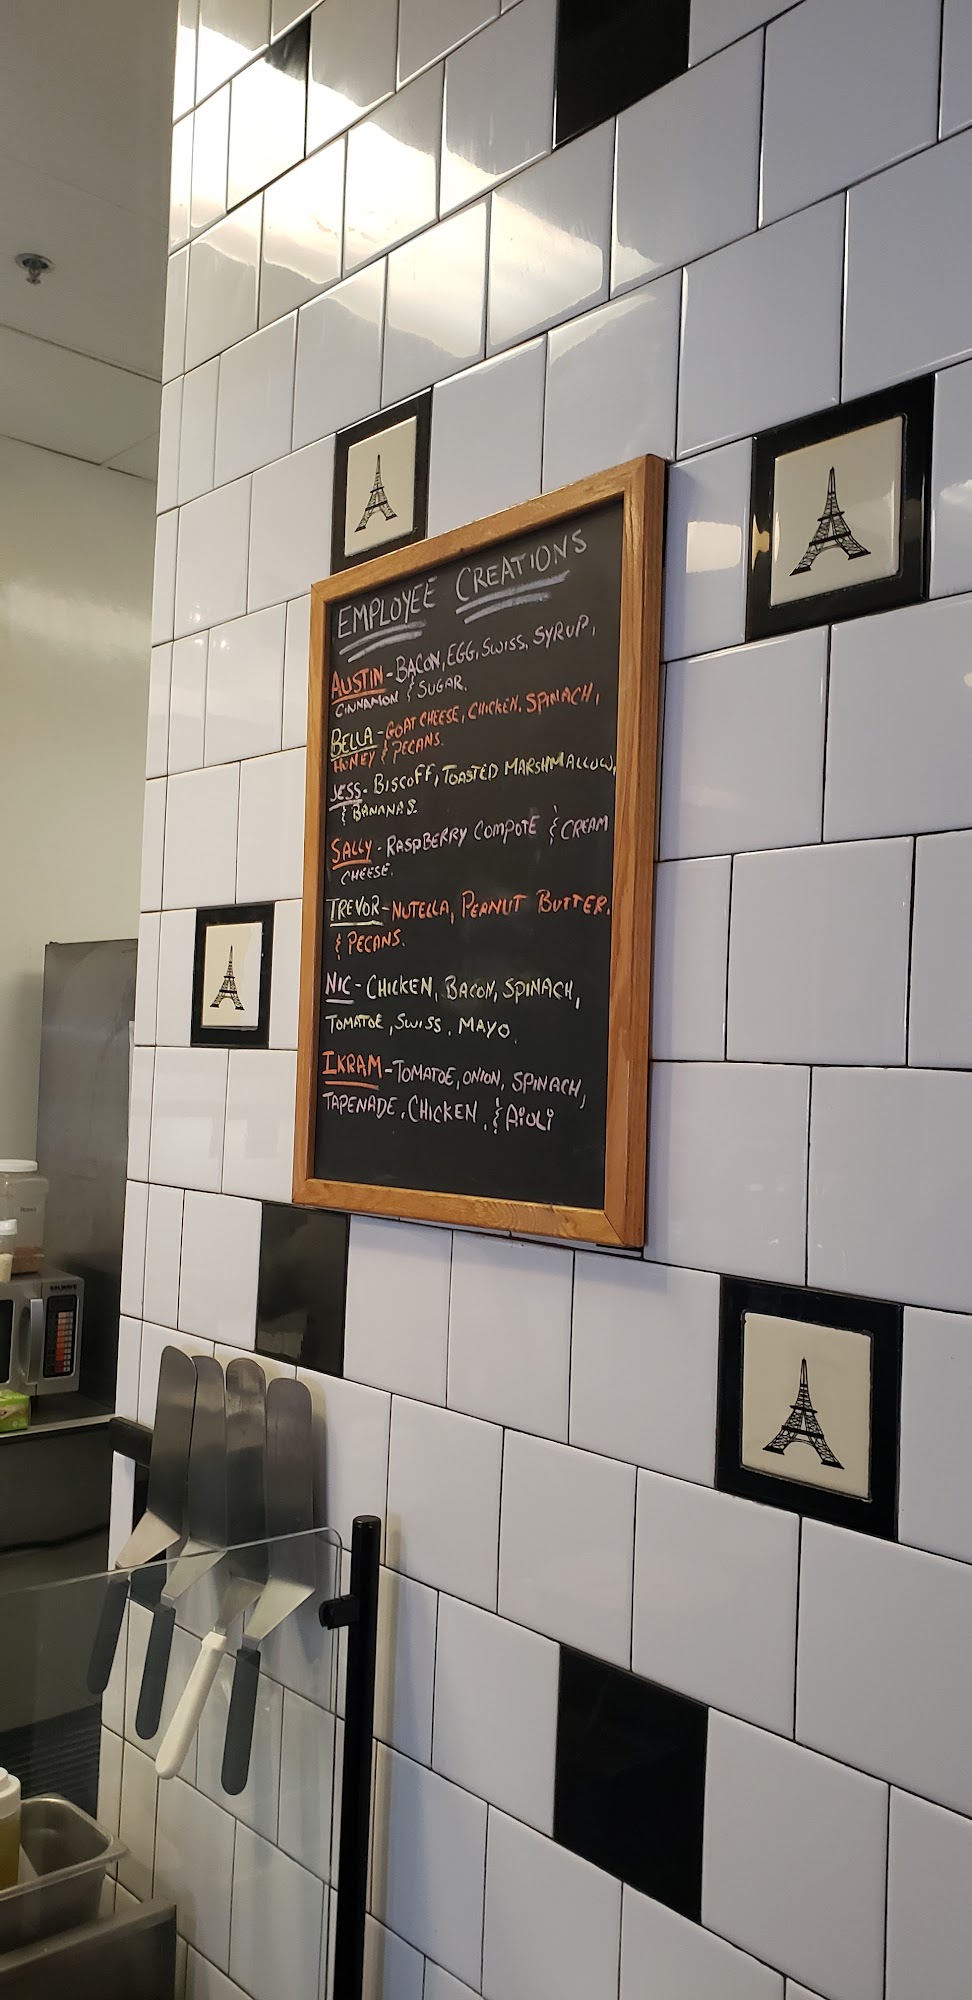 EMPLOYEE CREATIONS
AUSTIN - BACON, EGG, SWISS, SYRUP,
CINNAMON & SUGAR.
BELLA - GOAT CHEESE, CHICKEN, SPINACH,
HONEY & PECANS.
JESS - BISCOFF, TOASTED MARSHMALLOW,
& BANANAS
SALLY - RASPBERRY COMPOTE & CREAM
CHEESE.
TREVOR - NUTELLA, PEANUT BUTTER,
& PECANS.
NIC - CHICKEN, BACON, SPINACH,
TOMATOE, SWISS, MAYO.
IKRAM - TOMATOE, ONION, SPINACH,
TAPENADE, CHICKEN, & AIOLI